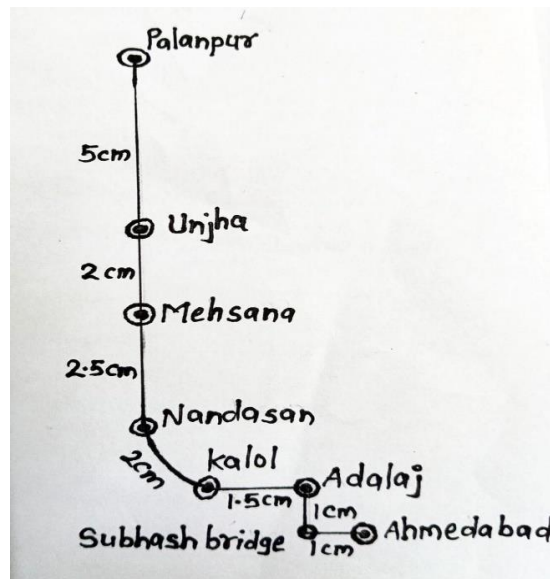 Palanpur
5cm
Unjha
2 cm
Mehsana
2.5cm
Nandasan
2cm
Kalol
1.5cm
Adalaj
1cm
Subhash bridge
1cm
Ahmedabad